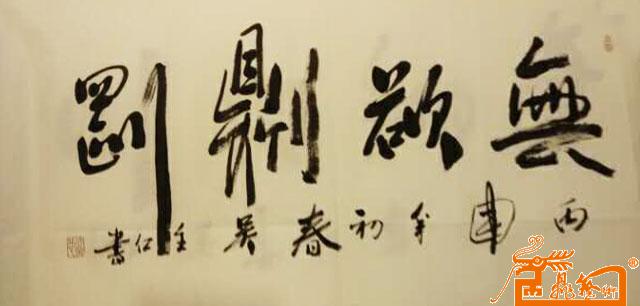 無欲則剛
丙申年初春吴仁書